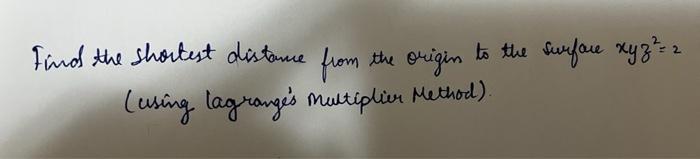 Find the shortest distance from the origin to the surface xyz²=2
(using lagrange's Multiplier Method).